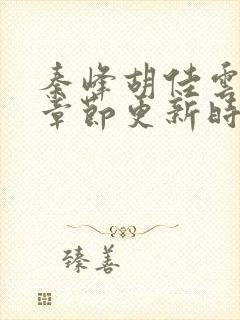 秦峰胡佳雲
章節更新時
臻善